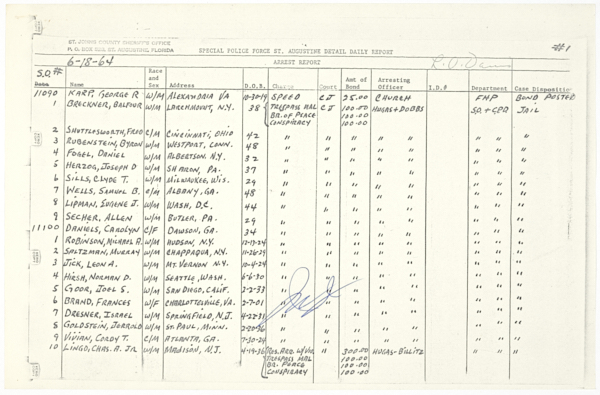 ST. JOHNS COUNTY SHERIFF'S OFFICE
P. O. BOX ST. AUGUSTINE, FLORIDA
SPECIAL POLICE FORCE ST. AUGUSTINE DETAIL DAILY REPORT
#1
6-18-64
ARREST REPORT
S.O. #
Name Race and Sex Address D.O.B. Charge Court Amt of Bond Arresting Officer I.D.# Department Case Disposition
11090 KARP, GEORGE R W/M ALEXANDRIA VA 10-30-49 SPEED CJ 25.00 CHURCH FHP BOND POSTED
1 BRICKNER, BALFOUR W/M LARCHMOUNT, N.Y. 38 TRESPASS MAL CJ 100.00 HUGAS + DOBBS S.O. + CPD JAIL
BR. OF PEACE 100.00
CONSPIRACY 100.00
2 SHUTTLESWORTH, FRED C/M CINCINNATI, OHIO 42 " " " " " "
3 RUBENSTEIN, BYRON W/M WESTPORT, CONN. 48 " " " " " "
4 FOGEL, DANIEL W/M ALBERTSON, N.Y. 32 " " " " " "
5 HERZOG, JOSEPH D W/M SHARON, PA. 37 " " " " " "
6 SILLS, CLYDE T. W/M MILWAUKEE, WIS. 29 " " " " " "
7 WELLS, SAMUEL B. C/M ALBANY, GA. 48 " " " " " "
8 LIPMAN, EUGENE J. W/M WASH, D.C. 44 " " " " " "
9 SECHER, ALLEN W/M BUTLER, PA. 29 " " " " " "
11100 DANIELS, CAROLYN C/F DAWSON, GA. 34 " " " " " "
1 ROBINSON, MICHAEL A. W/M HUDSON, N.Y. 12-13-24 " " " " " "
2 SALTZMAN, MURRAY W/M CHAPPAQUA, N.Y. 11-26-29 " " " " " "
3 JICK, LEON A. W/M MT. VERNON N.Y. 10-4-24 " " " " " "
4 HIRSH, NORMAN D. W/M SEATTLE, WASH. 6-6-30 " " " " " "
5 GOOR, JOEL S. W/M SAN DIEGO, CALIF. 2-2-33 " " " " " "
6 BRAND, FRANCES W/F CHARLOTTEVILLE, VA. 2-7-01 " " " " " "
7 DRESNER, ISRAEL W/M SPRINGFIELD, N.J. 4-22-31 " " " " " "
8 GOLDSTEIN, JERROLD W/M ST. PAUL, MINN. 2-20-36 " " " " " "
9 VIVIAN, CORDY T. C/M ATLANTA, GA. 7-30-24 " " " " " "
10 LINGO, CHAS. A. JR W/M MADISON, N.J. 4-19-36 RES. ARR. W/VIO. 300.00 HUGAS-BILLITZ " " "
TRESPASS MAL 100.00
BR. PEACE 100.00
CONSPIRACY 100.00